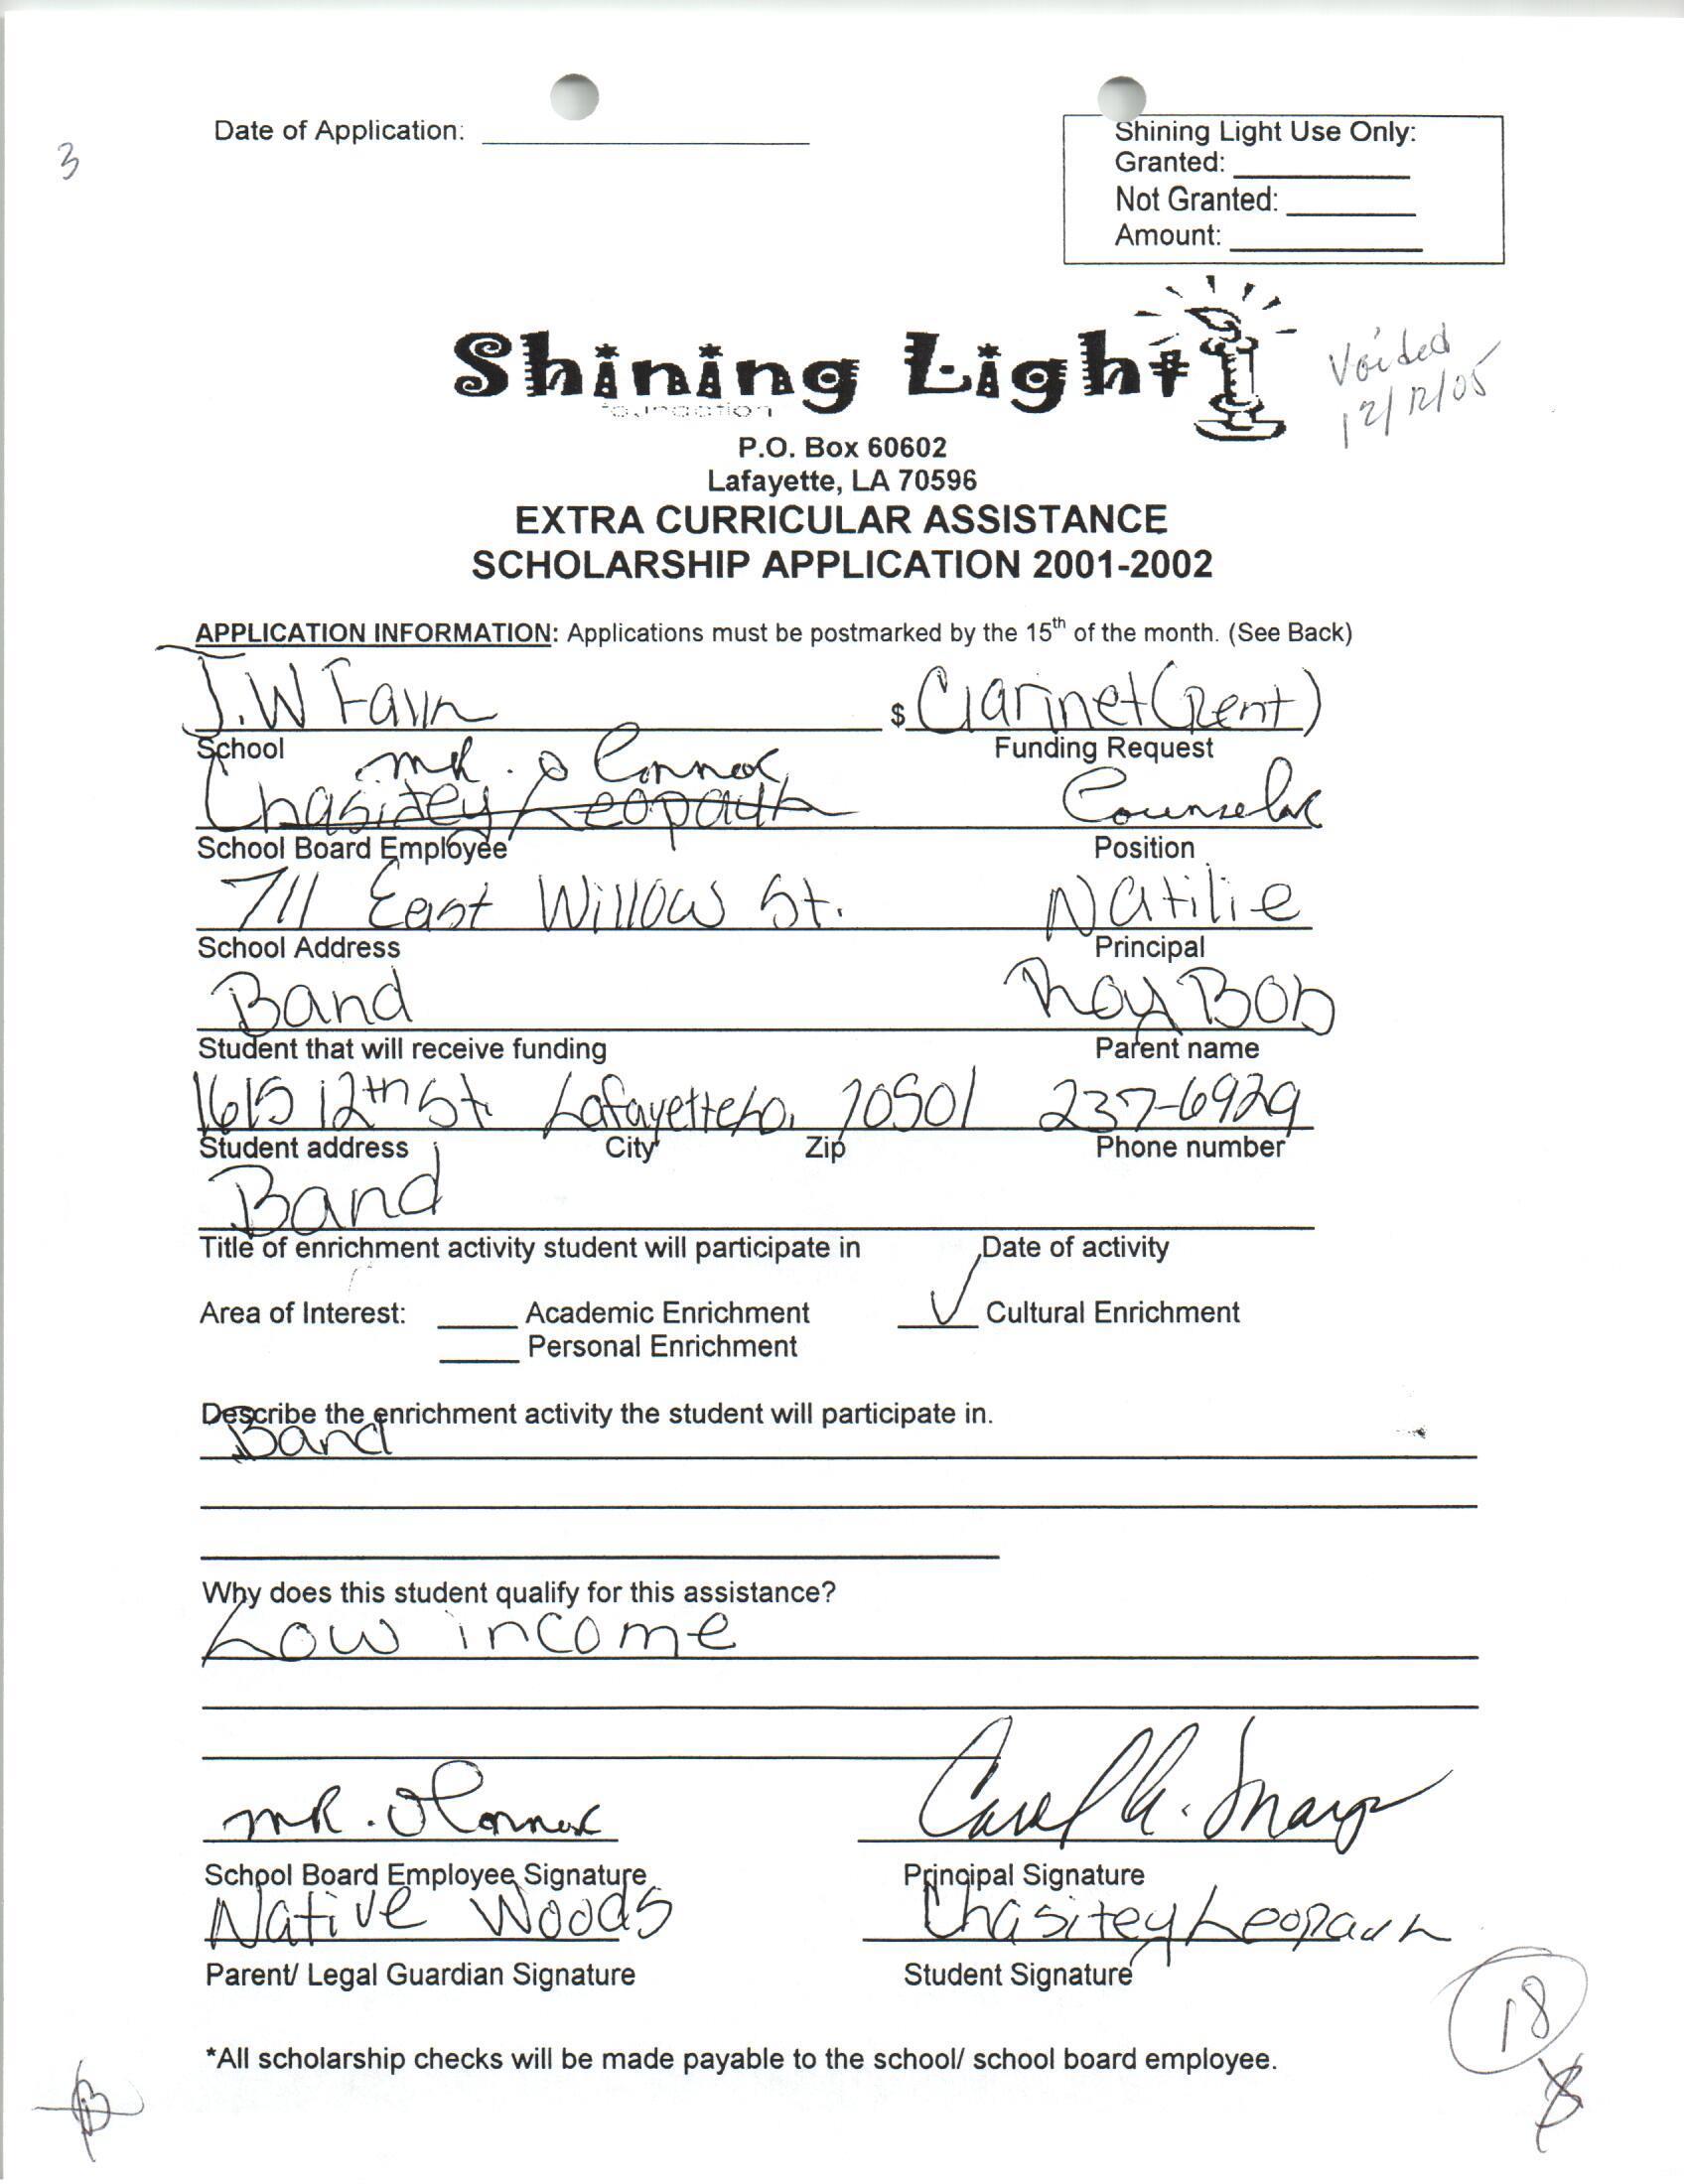 Date of Application:
3
Shining Light Use Only:
Granted:
Not Granted:
Amount:
Shining Light
foundation
Voided
12/12/05
P.O. Box 60602
Lafayette, LA 70596
EXTRA CURRICULAR ASSISTANCE
SCHOLARSHIP APPLICATION 2001-2002
APPLICATION INFORMATION: Applications must be postmarked by the 15th of the month. (See Back)
J.W Faulk $ Clarinet (Rent)
School Funding Request
mR. O Connor
Chasitey Counselor
School Board Employee Position
711 East Willow St. Natilie
School Address Principal
Band Roy Bob
Student that will receive funding Parent name
1615 12th St. Lafayette La. 70501 237-6929
Student address City Zip Phone number
Band
Title of enrichment activity student will participate in Date of activity
Area of Interest: Academic Enrichment ✓ Cultural Enrichment
Personal Enrichment
Describe the enrichment activity the student will participate in.
Band
Why does this student qualify for this assistance?
Low income
mR. O Connor
School Board Employee Signature Principal Signature
Native Woods Chasitey
Parent/ Legal Guardian Signature Student Signature
18
*All scholarship checks will be made payable to the school/ school board employee.